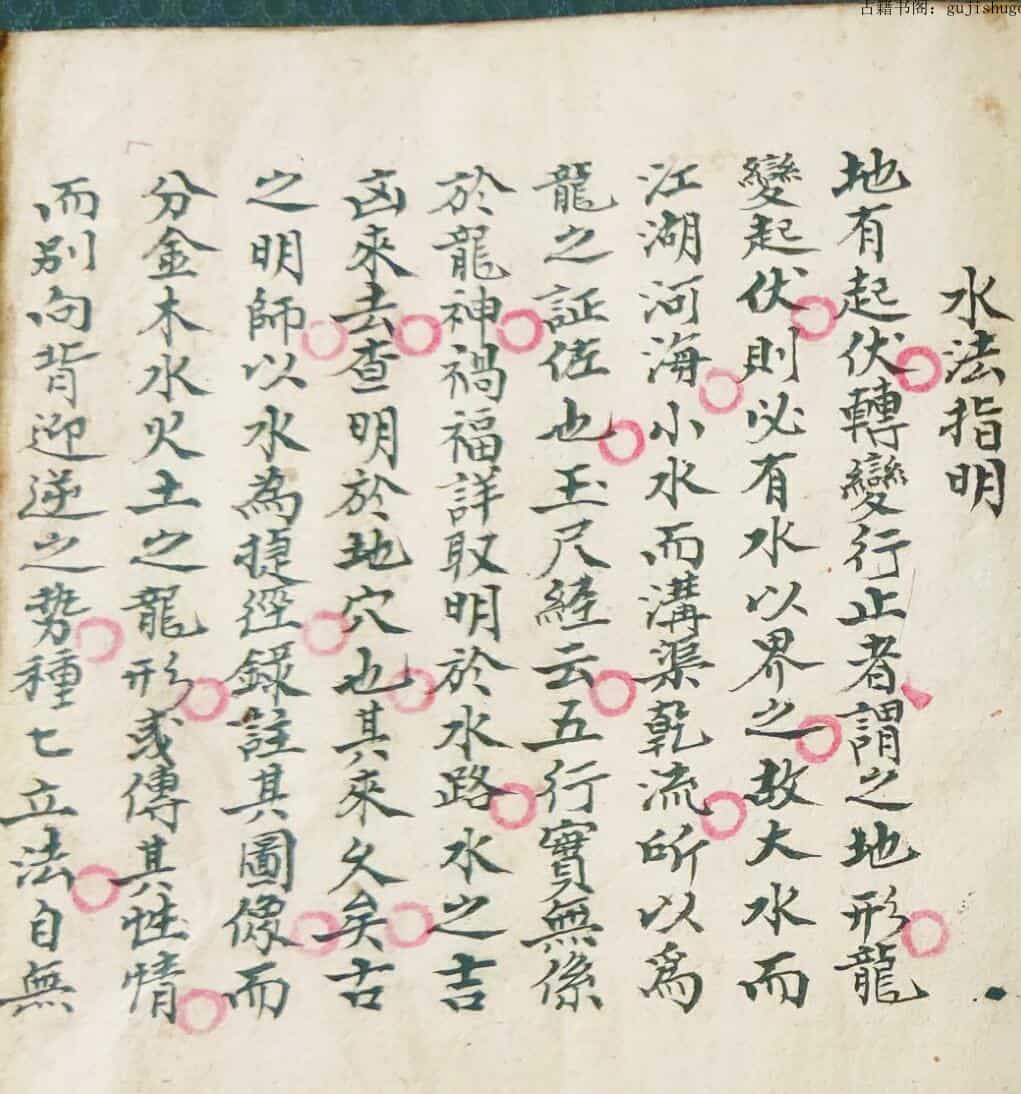 古籍书阁：gujishugo
水法指明
地有起伏轉變行止者謂之地形龍
變起伏則必有水以界之故大水而
江湖河海小水而溝渠乾流所以為
龍之証佐也玉尺經云五行實無係
於龍神禍福詳取明於水路水之吉
凶來去查明於地穴也其來久矣古
之明師以水為捷徑錄註其圖像而
分金木水火土之龍形或傳其性情
而别向背迎逆之势種七立法自無